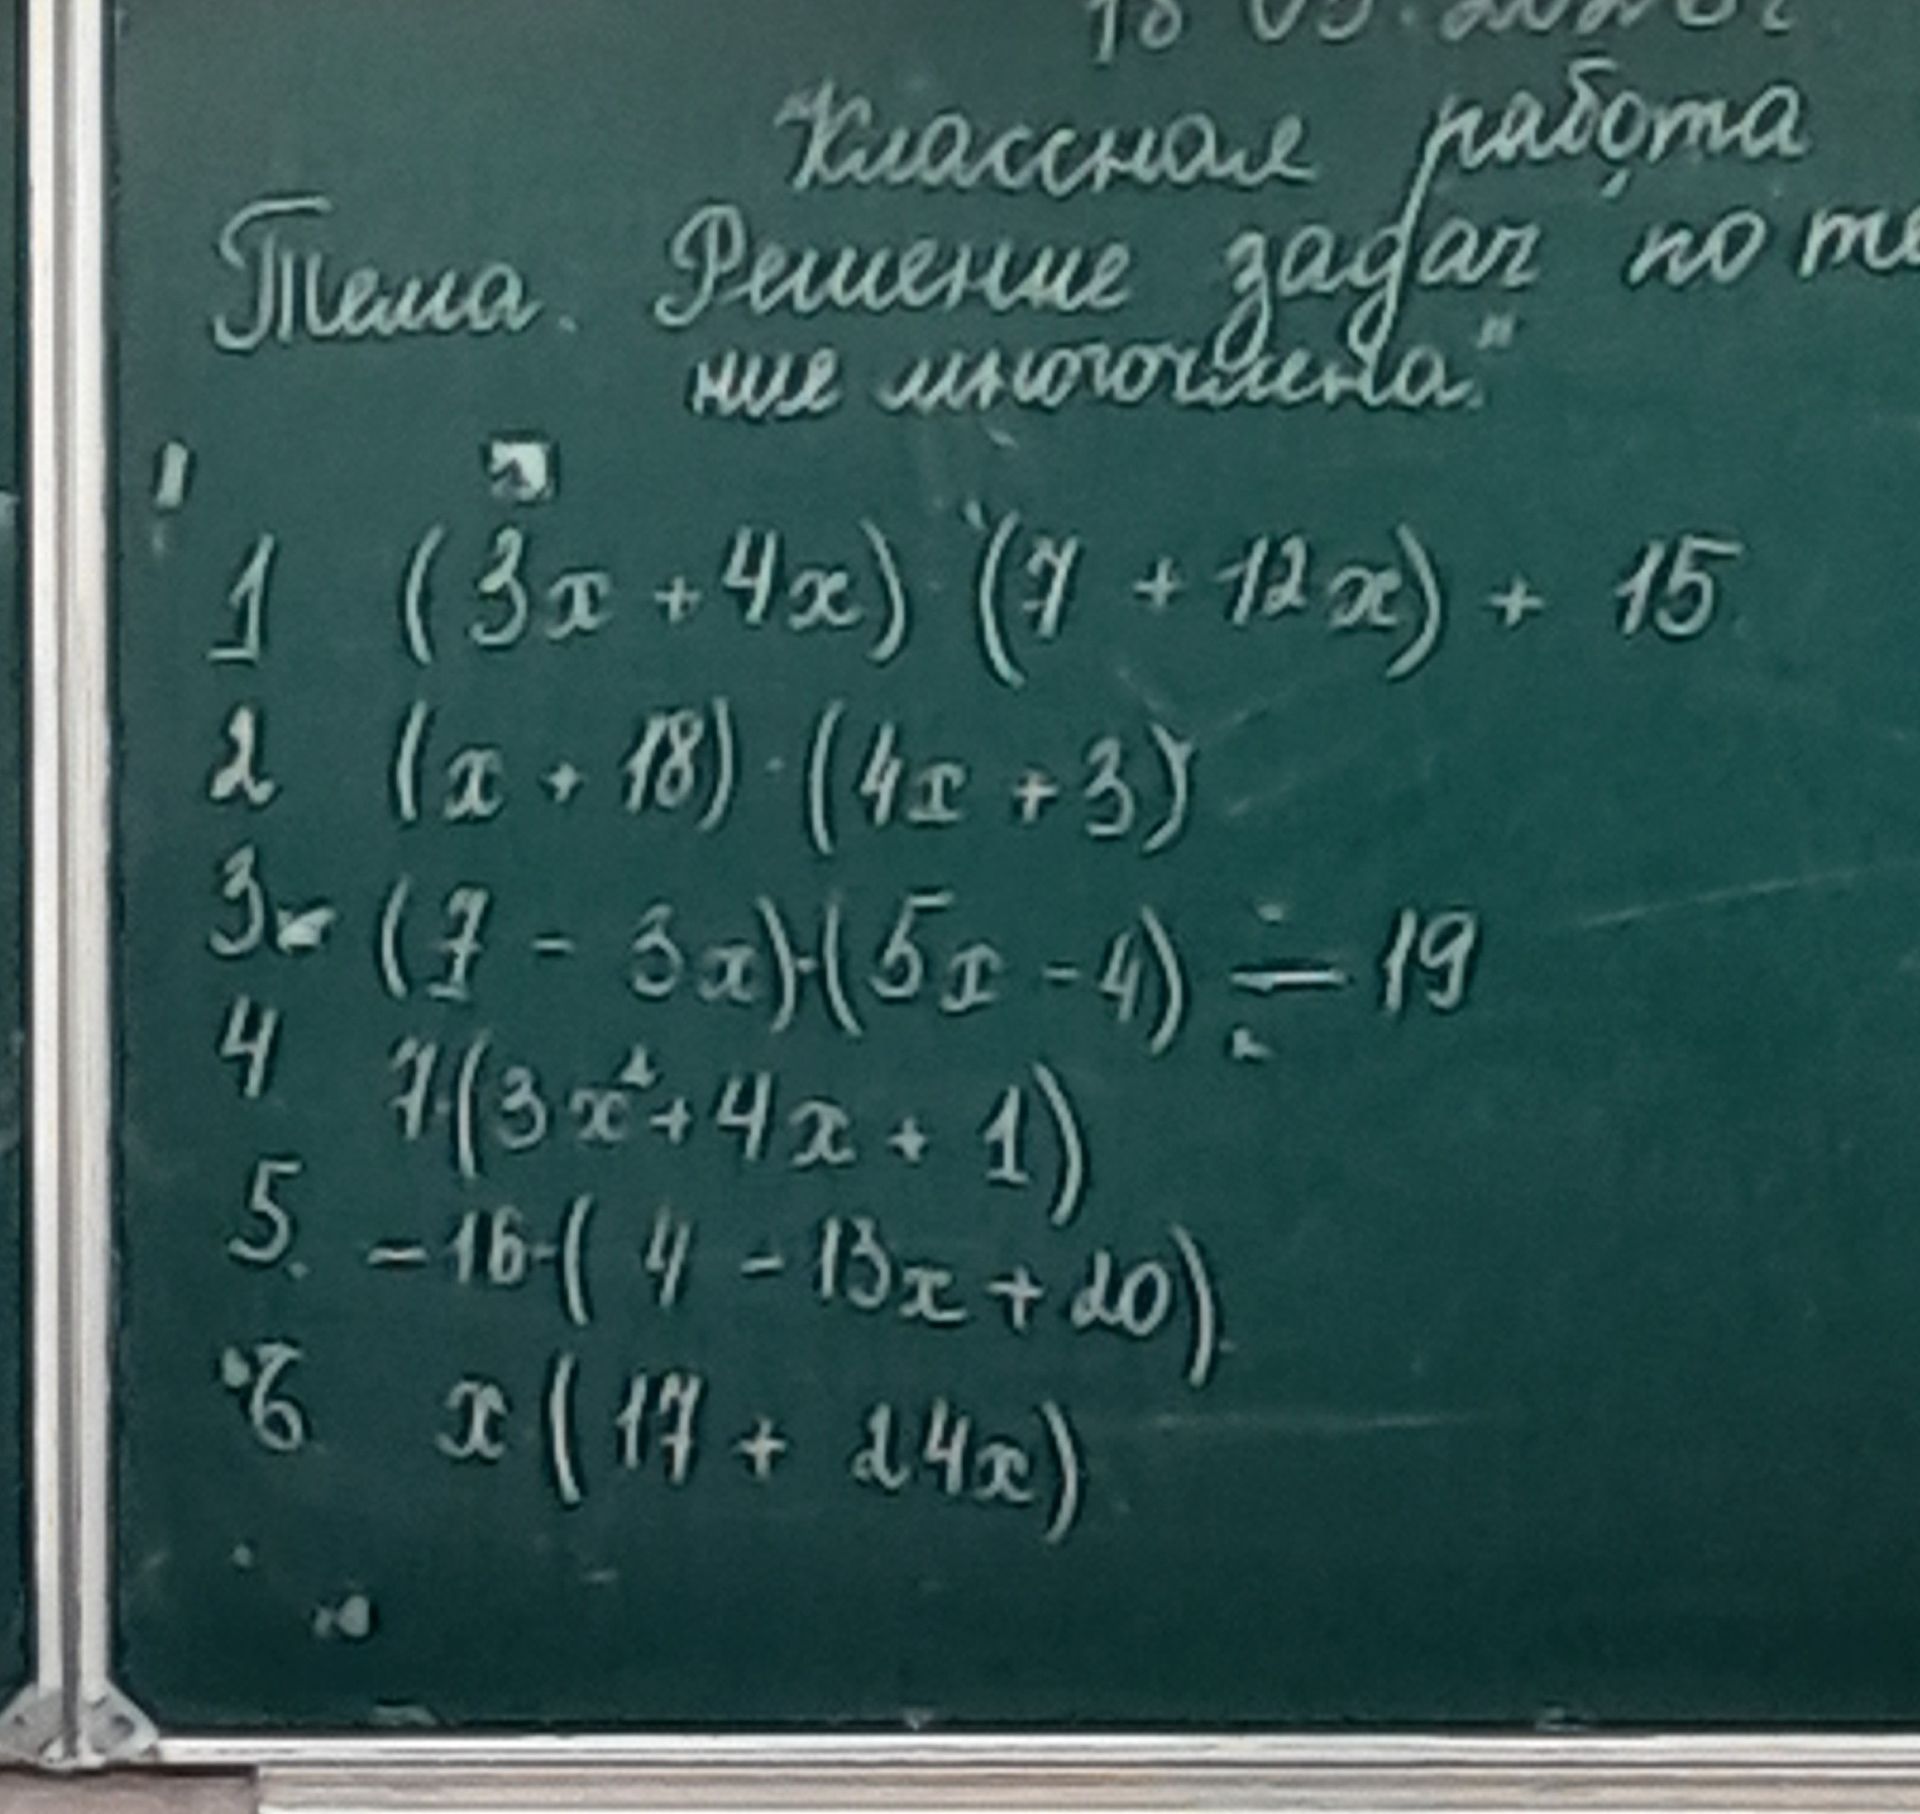 Классная работа
Тема. Решение задач по те
ние многочлена."
1 (3x + 4x) (7 + 12x) + 15
2 (x + 18) · (4x + 3)
3. (7 - 3x)·(5x - 4) ÷ 19
4 7·(3x²+4x + 1)
5. -16·( 4 - 13x + 20)
6 x ( 17 + 24x)